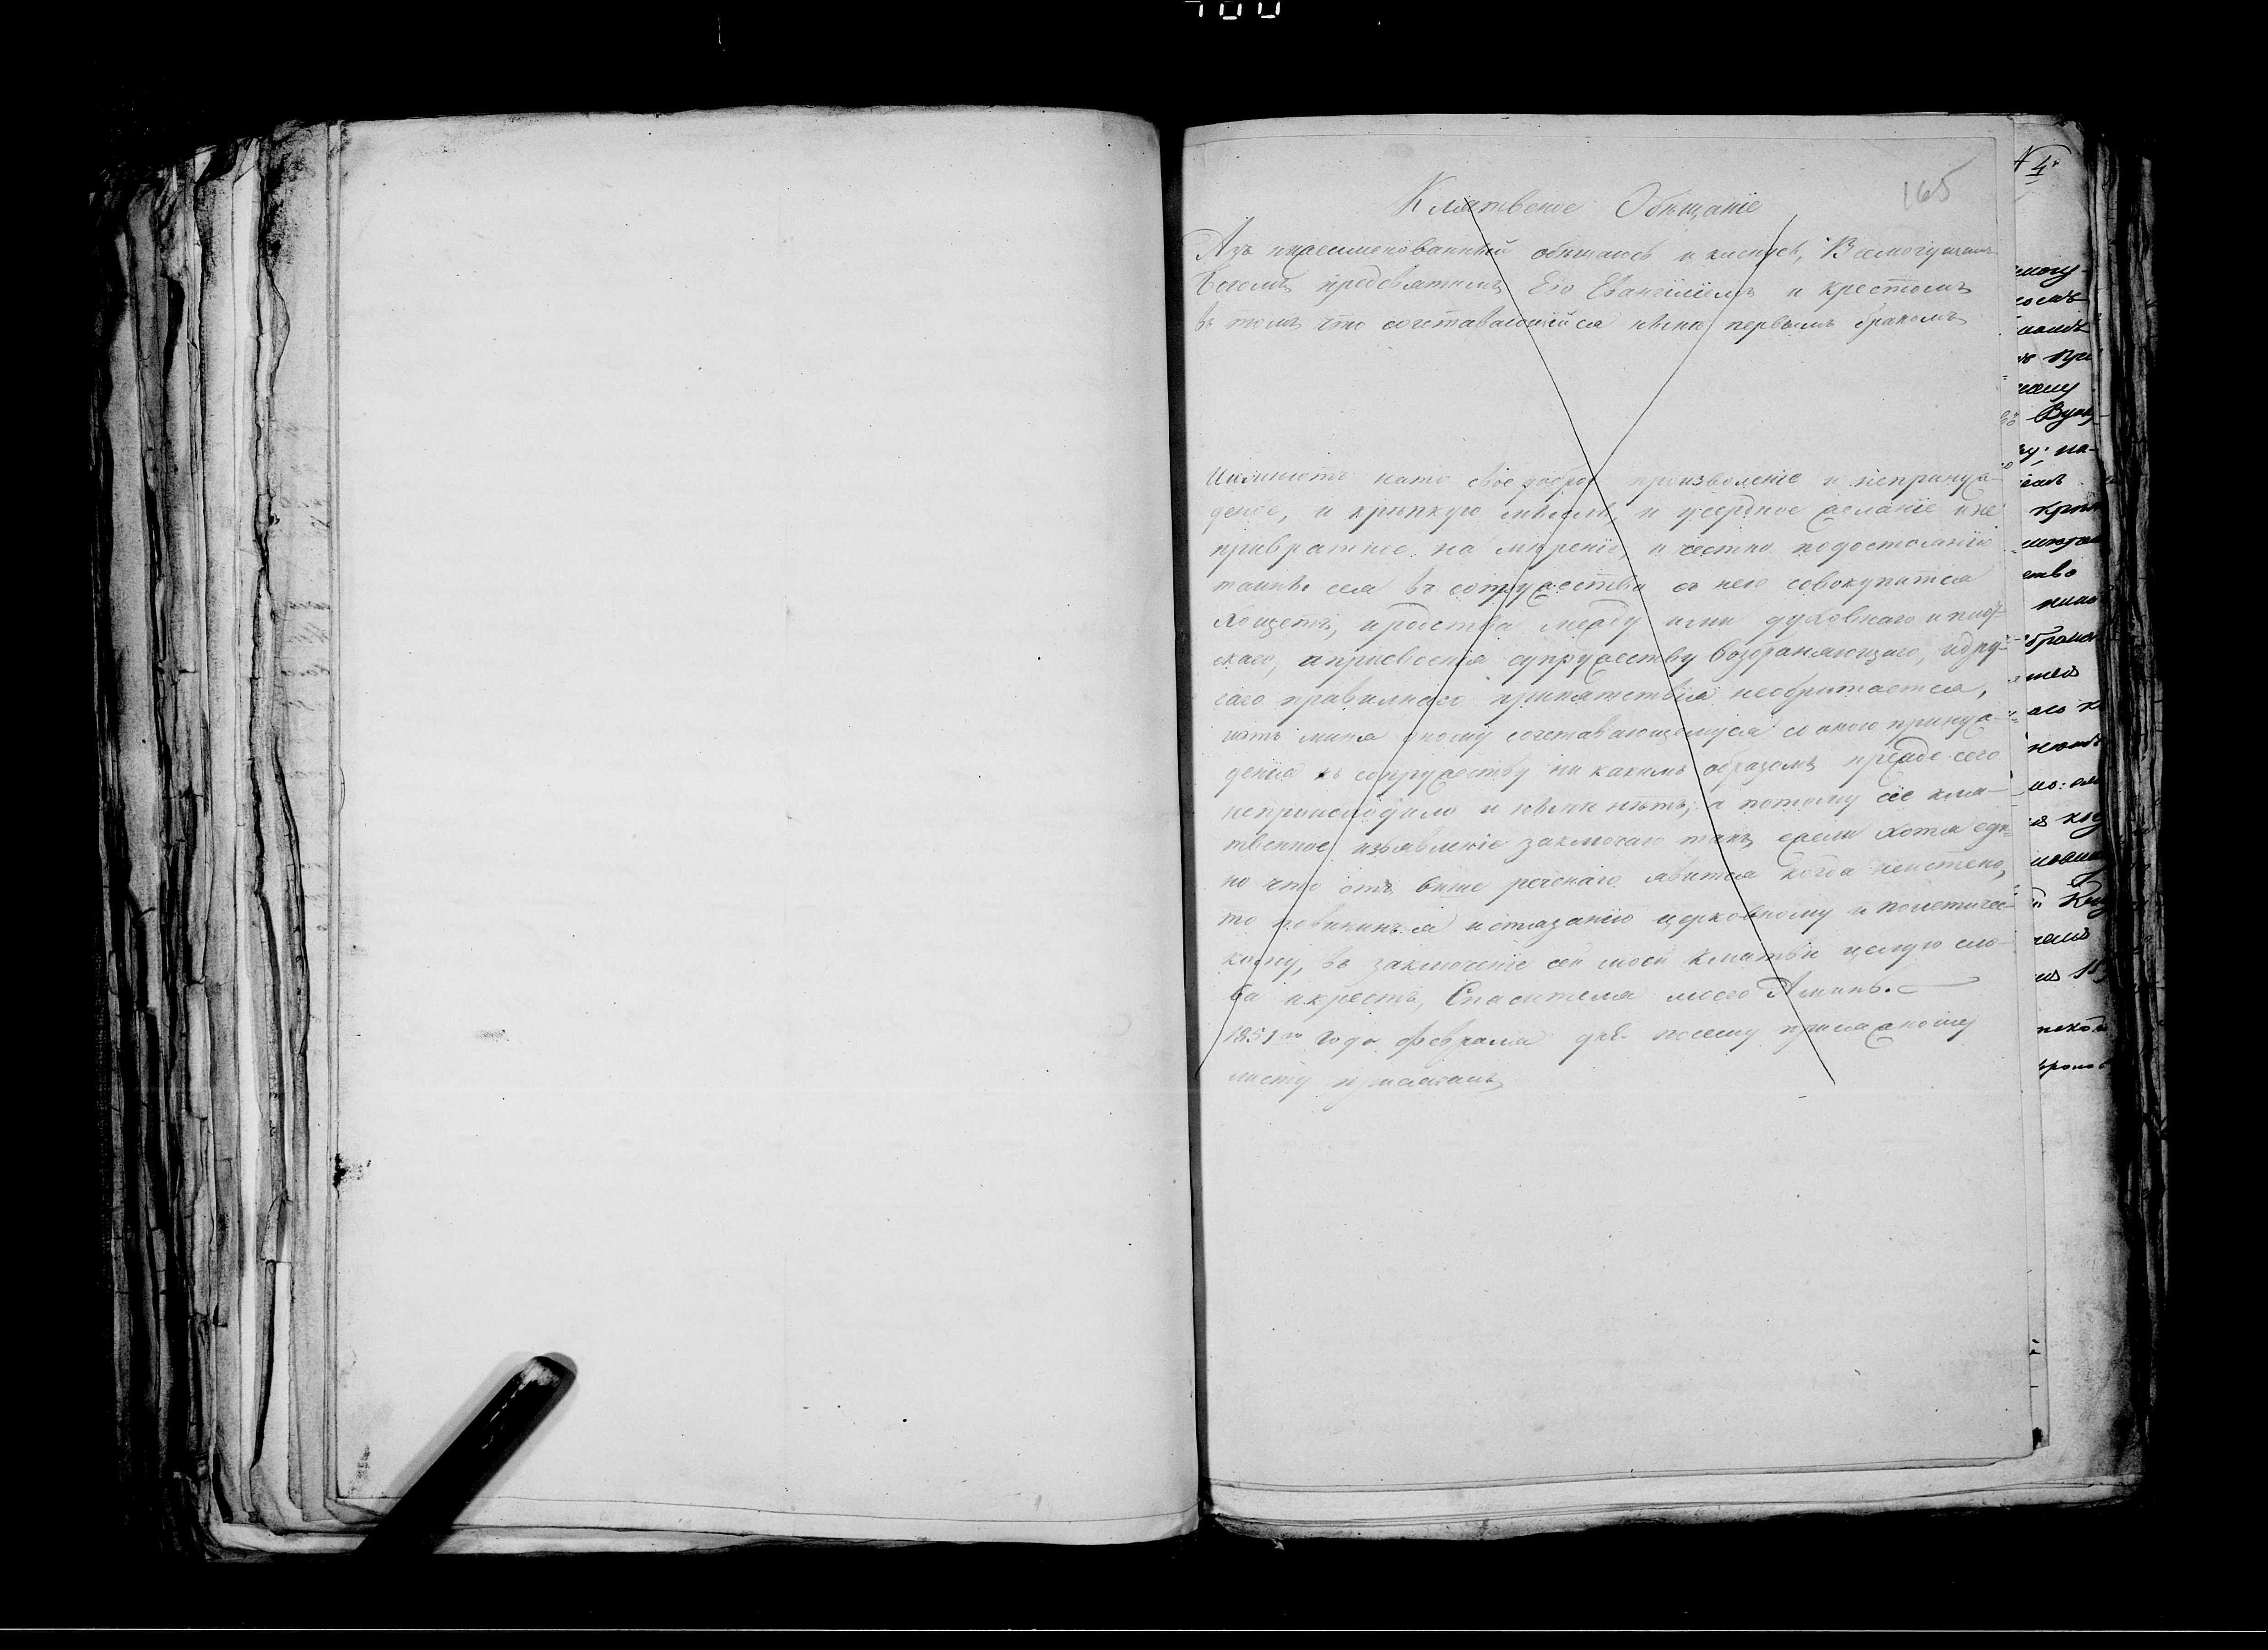 165
Клятвеное Обѣщаніе
Азъ нижеименованный обѣщаюсь и кленусь, Всемогущимъ
Богомъ предсвятимъ Его Евангиліемъ и крестомъ
въ томъ что сочетавающійся нынѣ первымъ бракомъ
Имѣиютъ нато свое доброе произволеніе и непринуж-
деное, и крѣпкую мысль, и усердное желаніе и не
привратное на мѣреніе, и честно подостоянію
тайны сея въ сопружество съ нею совокупится
хощетъ, иродства между ими духовнаго и плоц-
скаго, априсвоенія супружеству возбраняющаго, идру-
гаго правилнаго припятствія необритается,
иотъ миня оному сочетавающемуся со оною принуж-
денія къ сопружеству ни какимъ образомъ прежде сего
непроисходило и нынѣ нѣтъ, а потому сіе кля-
твенное изъявленіе заключаю такъ ежели хотя оди-
но что отъ више реченаго явится когда неистено,
то повиненъ я истязанію церковному и политичес-
кому, въ заключеніе сей моей клятвы целую сло-
ва икрестъ, Спасителя моего Аминь.
1851го года Февраля дня. посему присяжному
листу присягалъ
№ 4.